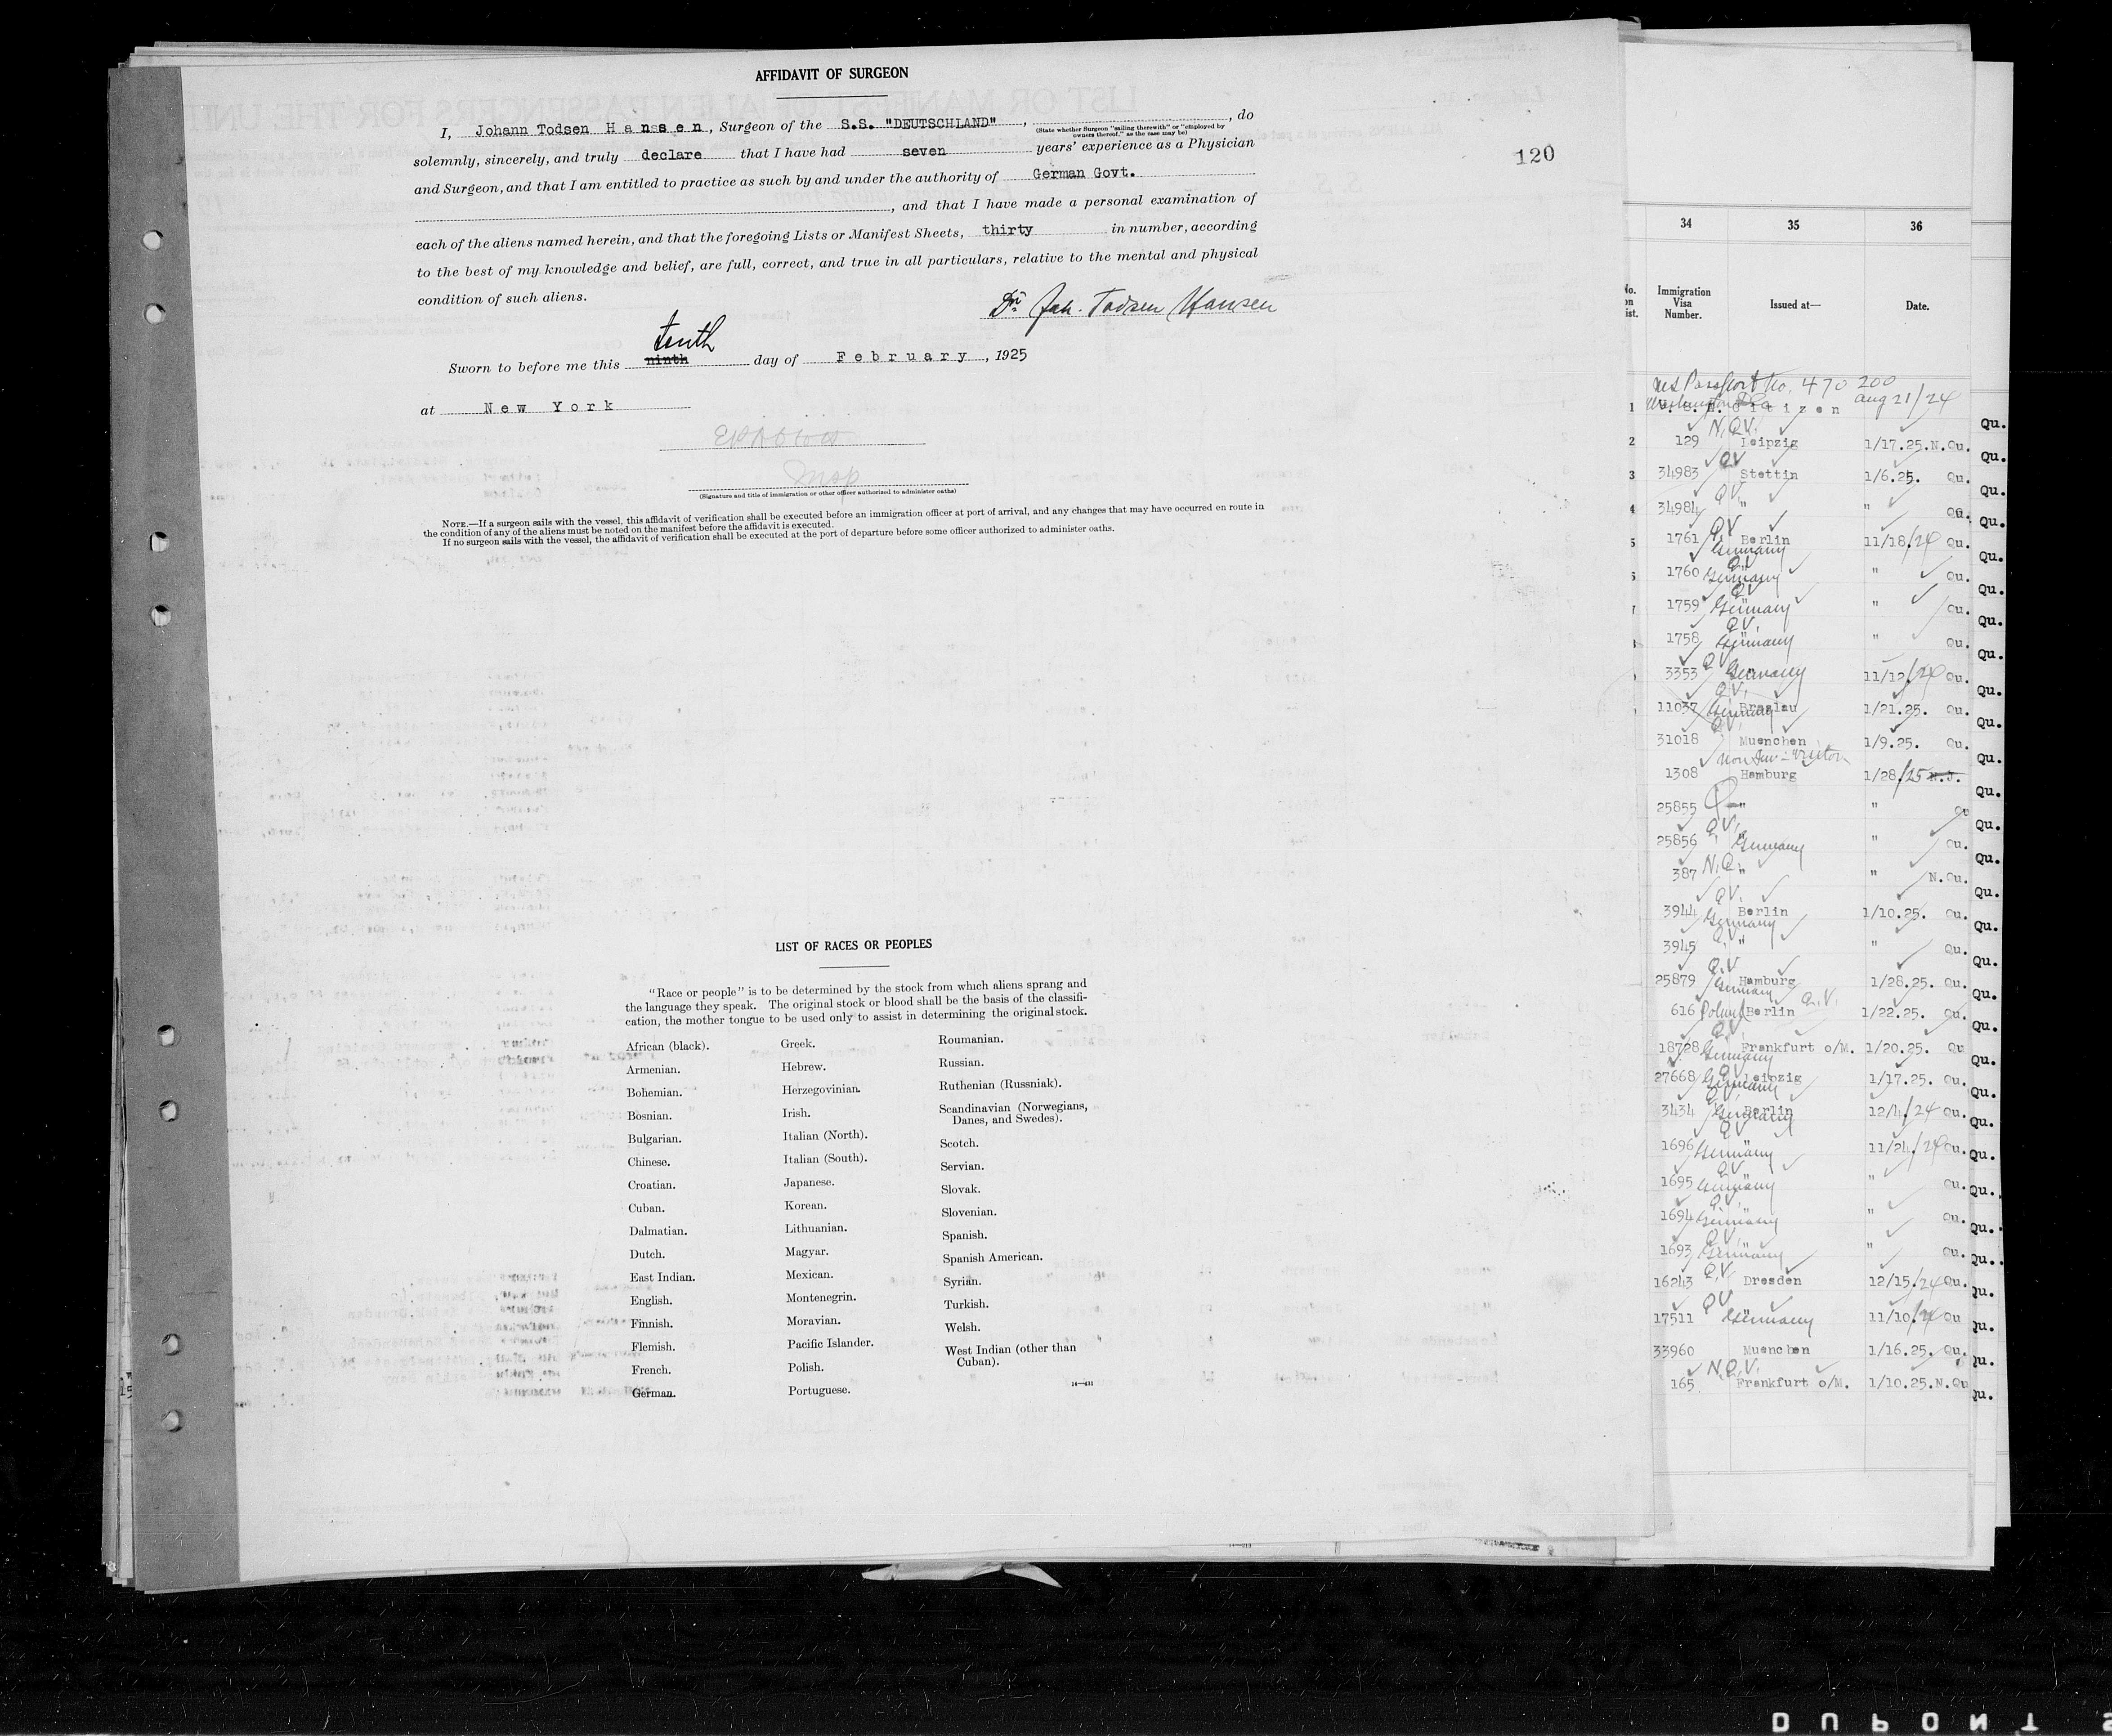 AFFIDAVIT OF SURGEON
I, Johann Todsen Hansen, Surgeon of the S.S. "DEUTSCHLAND", , do
(State whether Surgeon "sailing therewith" or "employed by owners thereof," as the case may be)
solemnly, sincerely, and truly declare that I have had seven years' experience as a Physician
and Surgeon, and that I am entitled to practice as such by and under the authority of German Govt.
, and that I have made a personal examination of
each of the aliens named herein, and that the foregoing Lists or Manifest Sheets, thirty in number, according
to the best of my knowledge and belief, are full, correct, and true in all particulars, relative to the mental and physical
condition of such aliens.
Dr. Joh. Todsen Hansen
tenth
Sworn to before me this ninth day of February, 1925
at New York
Insp
(Signature and title of immigration or other officer authorized to administer oaths)
NOTE.—If a surgeon sails with the vessel, this affidavit of verification shall be executed before an immigration officer at port of arrival, and any changes that may have occurred en route in
the condition of any of the aliens must be noted on the manifest before the affidavit is executed.
If no surgeon sails with the vessel, the affidavit of verification shall be executed at the port of departure before some officer authorized to administer oaths.
120
LIST OF RACES OR PEOPLES
"Race or people" is to be determined by the stock from which aliens sprang and
the language they speak. The original stock or blood shall be the basis of the classifi-
cation, the mother tongue to be used only to assist in determining the original stock.
African (black).
Armenian.
Bohemian.
Bosnian.
Bulgarian.
Chinese.
Croatian.
Cuban.
Dalmatian.
Dutch.
East Indian.
English.
Finnish.
Flemish.
French.
German.
Greek.
Hebrew.
Herzegovinian.
Irish.
Italian (North).
Italian (South).
Japanese.
Korean.
Lithuanian.
Magyar.
Mexican.
Montenegrin.
Moravian.
Pacific Islander.
Polish.
Portuguese.
Roumanian.
Russian.
Ruthenian (Russniak).
Scandinavian (Norwegians,
Danes, and Swedes).
Scotch.
Servian.
Slovak.
Slovenian.
Spanish.
Spanish American.
Syrian.
Turkish.
Welsh.
West Indian (other than
Cuban).
34 35 36
Immigration Visa Number. Issued at— Date.
Passport No. 470 200
Washington Aug 21/24
1 U.S. Citizen
N.Q.V.
2 129 Leipzig 1/17.25. N.Qu.
QV
3 34983 Stettin 1/6.25. Qu.
QV.
4 34984 " " Qu.
QV
5 1761 Berlin 11/18/24 Qu.
Germany
1760 " Germany " Qu.
QV
1759 " Germany " Qu.
QV.
1758 " Germany " Qu.
QV
3353 " Germany 11/12/24 Qu.
QV.
11037 Breslau Germany 1/21.25. Qu.
QV.
31018 Muenchen 1/9.25. Qu.
Non Im - Visitor
1308 Hamburg 1/28/25
25855 " " Qu
QV.
25856 " Germany " Qu.
N.Q.
387 " " N.Qu.
QV.
3944 Berlin 1/10.25. Qu.
Germany
3945 " " Qu.
QV
25879 Hamburg 1/28.25. Qu.
Germany
616 Poland Berlin Q.V. 1/22.25. Qu.
QV
18728 Frankfurt o/M. 1/20.25. Qu
Germany
27668 Leipzig 1/17.25. Qu.
Germany
3434 Berlin Germany 12/4/24 Qu.
QV
1696 " Germany 11/24/24 Qu.
QV
1695 " Germany " Qu.
QV.
1694 " Germany " Qu.
QV.
1693 " Germany " Qu.
Q.V.
16243 Dresden 12/15/24 Qu.
QV
17511 " Germany 11/10/24 Qu
33960 Muenchen 1/16.25. Qu.
N.Q.V.
165 Frankfurt o/M. 1/10.25. N.Qu
DUPONT S